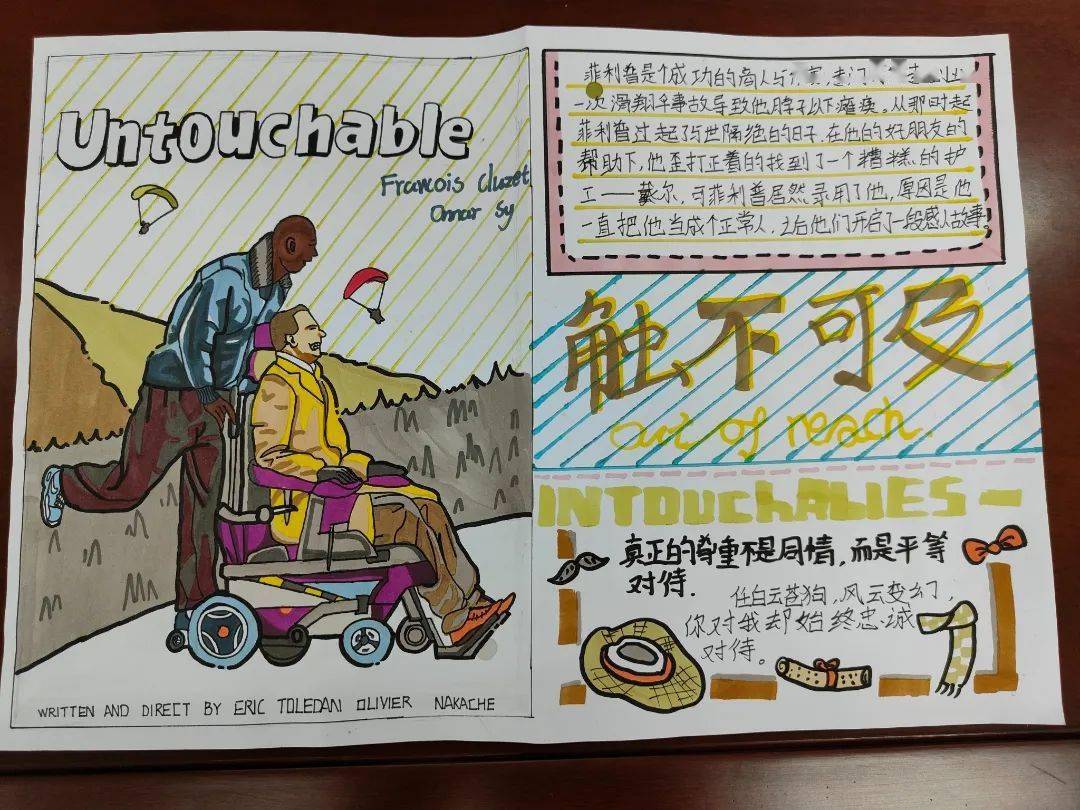 Untouchable
Francois Cluzet
Omar Sy
WRITTEN AND DIRECT BY ERIC TOLEDAN OLIVIER NAKACHE
菲利普是个成功的商人与
一次滑翔伞事故导致他脖子以下瘫痪。从那时起
菲利普过起了与世隔绝的日子.在他的好朋友的
帮助下,他歪打正着的找到了一个糟糕的护
工——戴尔,可菲利普居然录用了他,原因是他
一直把他当成个正常人,之后他们开启了一段感人故事。
触不可及
out of reach.
INTOUCHABLIES—
真正的尊重不是同情,而是平等
对待.
任白云苍狗,风云变幻,
你对我却始终忠诚
对待。